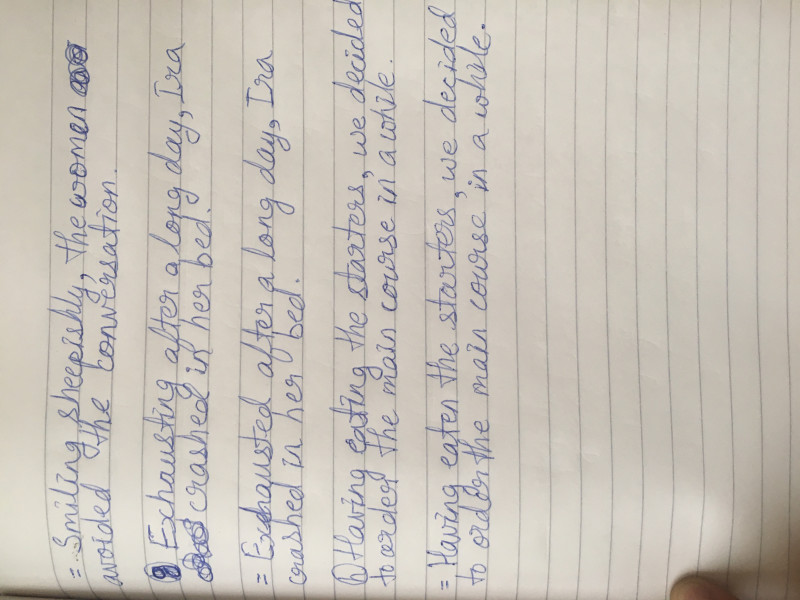 = Smiling sheepishly, the women
avoided the conversation.
g) Exhausting after a long day, Ira
crashed in her bed.
= Exhausted after a long day, Ira
crashed in her bed.
h) Having eating the starters, we decided
to order the main course in a while.
= Having eaten the starters, we decided
to order the main course in a while.